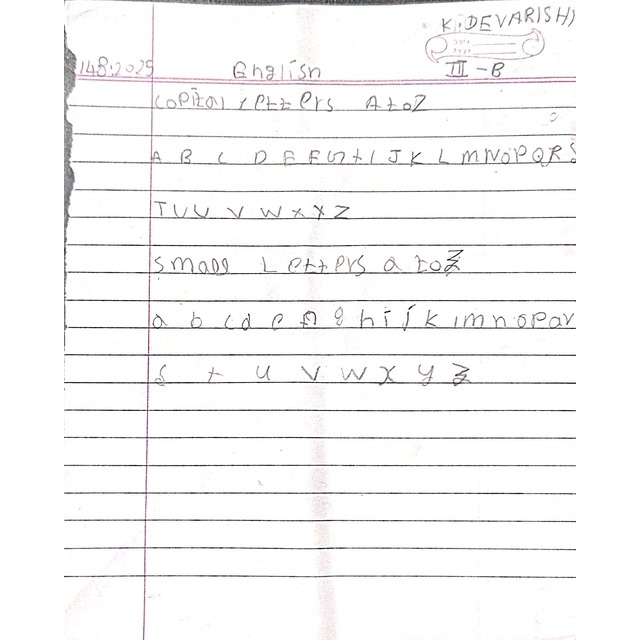 K. DEVARISH)
III - B
148.2025 English
Capital letters A to Z
A B C D E F G H I J K L M N O P Q R S
T U U V W X Y Z
small Letters a to z
a b c d e f g h i j k l m n o p q r
s t u v w x y z